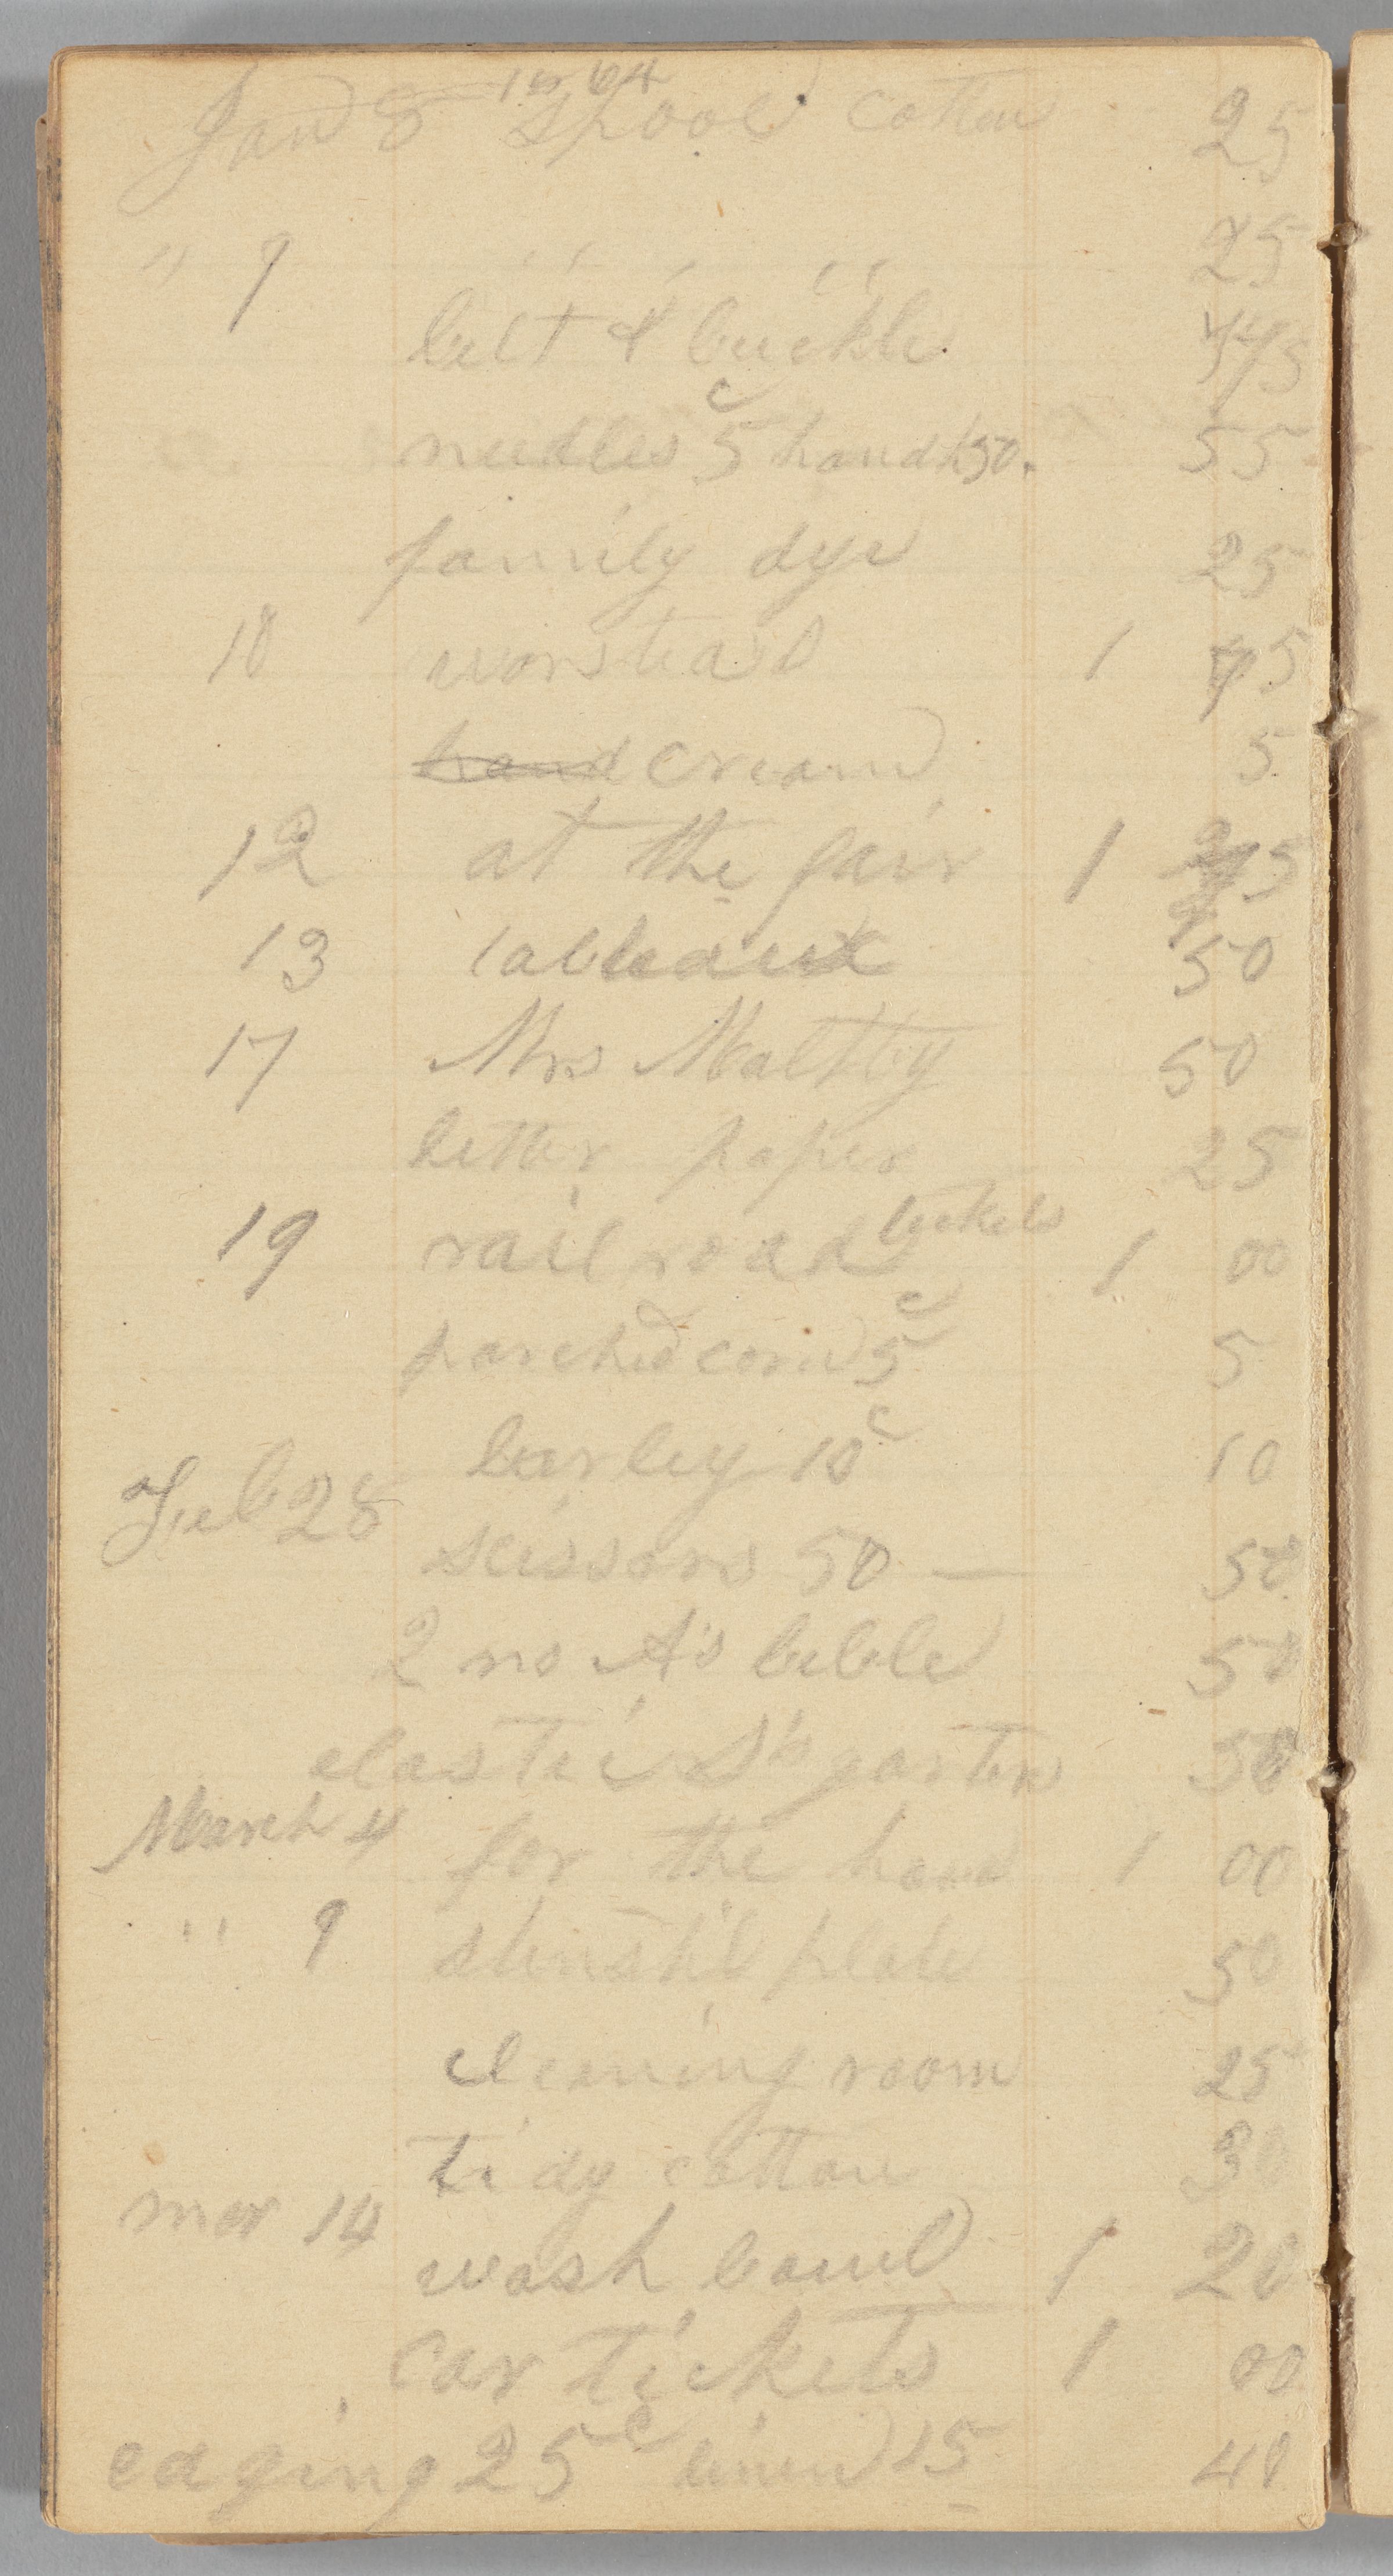 1864
Jan 8 spool cotton 25
" 9 " " " 25
belt & buckle 75
needles 5c handk 50. 55
family dye 25
10 worstead 1 75
hand cream 5
12 at the fair 1 25
13 tableaux 50
17 Mrs Maltby 50
letter paper 25
19 rail road tickets 1 00
parched corn 5c 5
barley 10c 10
Feb 28
scissors 50 — 50
2 no A's bible 50
elastic S's garters 50
March 4 for the hand 1 00
" 9 stensil plate 50
cleaning room 25
tidy cotton 30
mar 14
wash bowl 1 20
car tickets 1 00
edging 25c linen 15 40